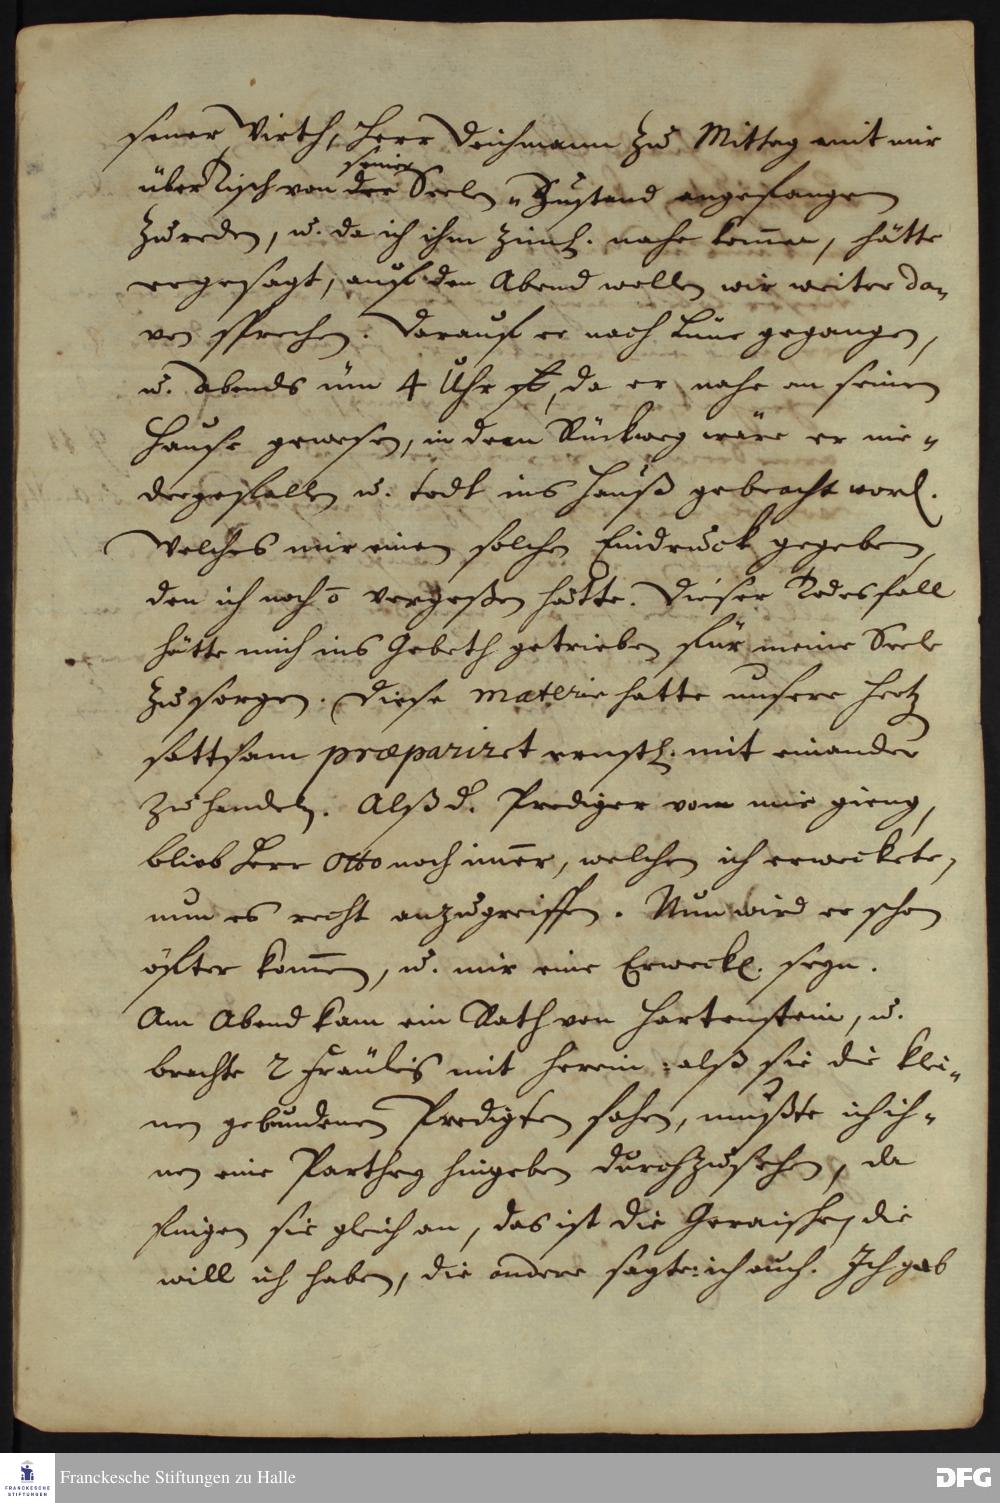 sener Wirth, Herr Deichmann zu Mittag mit mir
seiner
über Tisch von der Seelen-Zustand angefangen
zu reden, u. da ich ihm ziml. nahe komen, hätte
er gesagt, auf den Abend wollen wir weiter da-
von sprechen. Darauf er nach Lüne gegangen,
u. abends um 4 Uhr, da er nahe an seinem
Hause gewesen, in dem Rückweg wäre er nie-
dergefallen u. todt ins Hauß gebracht word.
Welches mir einen solchen Eindruck gegeben,
den ich noch õ vergeßen hätte. Dieser Todesfall
hätte mich ins Gebeth getrieben für meine Seele
zu sorgen. Diese materie hatte unsere Hertz
sattsam præpariret ernstl. mit einander
zu handeln. Alß d. Prediger von mir gieng,
blieb Herr Otto noch imer, welchen ich erweckete,
nun es recht anzugreiffen. Nun wird er schon
öfter komen, u. mir eine Erweckl. seyn.
Am Abend kam ein Rath von Hartenstein, u.
brachte 2 Fräuleis mit herein: alß sie die klei-
nen gebundenen Predigten sahen, mußte ich ih-
nen eine Parthey hingeben durchzusehen, da
fingen sie gleich an, das ist die Geraische, die
will ich haben, die andere sagte: ich auch. Ich gab
Franckesche Stiftungen zu Halle
FRANCKESCHE
STIFTUNGEN
DFG